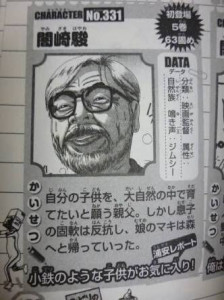 CHARACTER No.331
初登場
5巻
63固め
闇崎駿
やみ ざき はやお
DATA
データ
分類:映画監督
属性:自然族
鳴き声:ジムシー
かいせつ
自分の子供を、大自然の中で育
てたいと願う親父。しかし息子
の固軟は反抗し、娘のマキは森
へと帰っていった。
浦安レポート
小鉄のような子供がお気に入り!
かいせつ
俺は